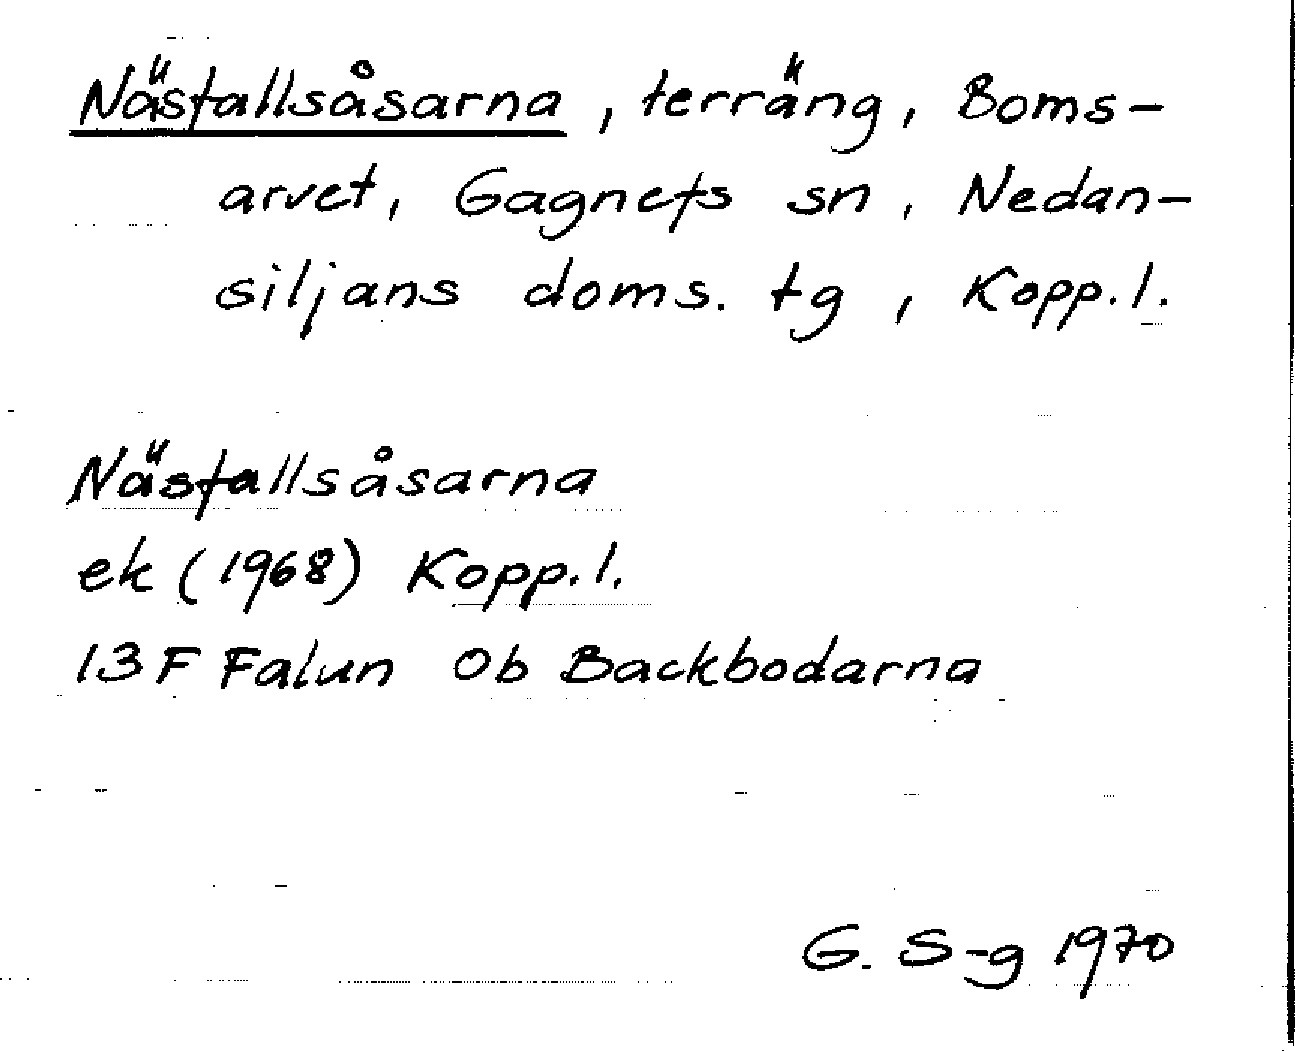 Näsfallsåsarna, terräng, Boms-
arvet, Gagnefs sn, Nedan-
siljans doms. tg, Kopp.l.
Näsfallsåsarna
ek (1968) Kopp.l.
13F Falun 0b Backbodarna
G. S-g 1970